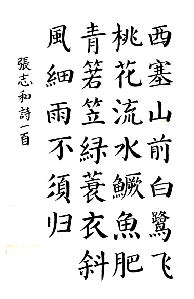 西塞山前白鷺飞
桃花流水鱖魚肥
青箬笠緑蓑衣斜
風細雨不須归
張志和詩一首